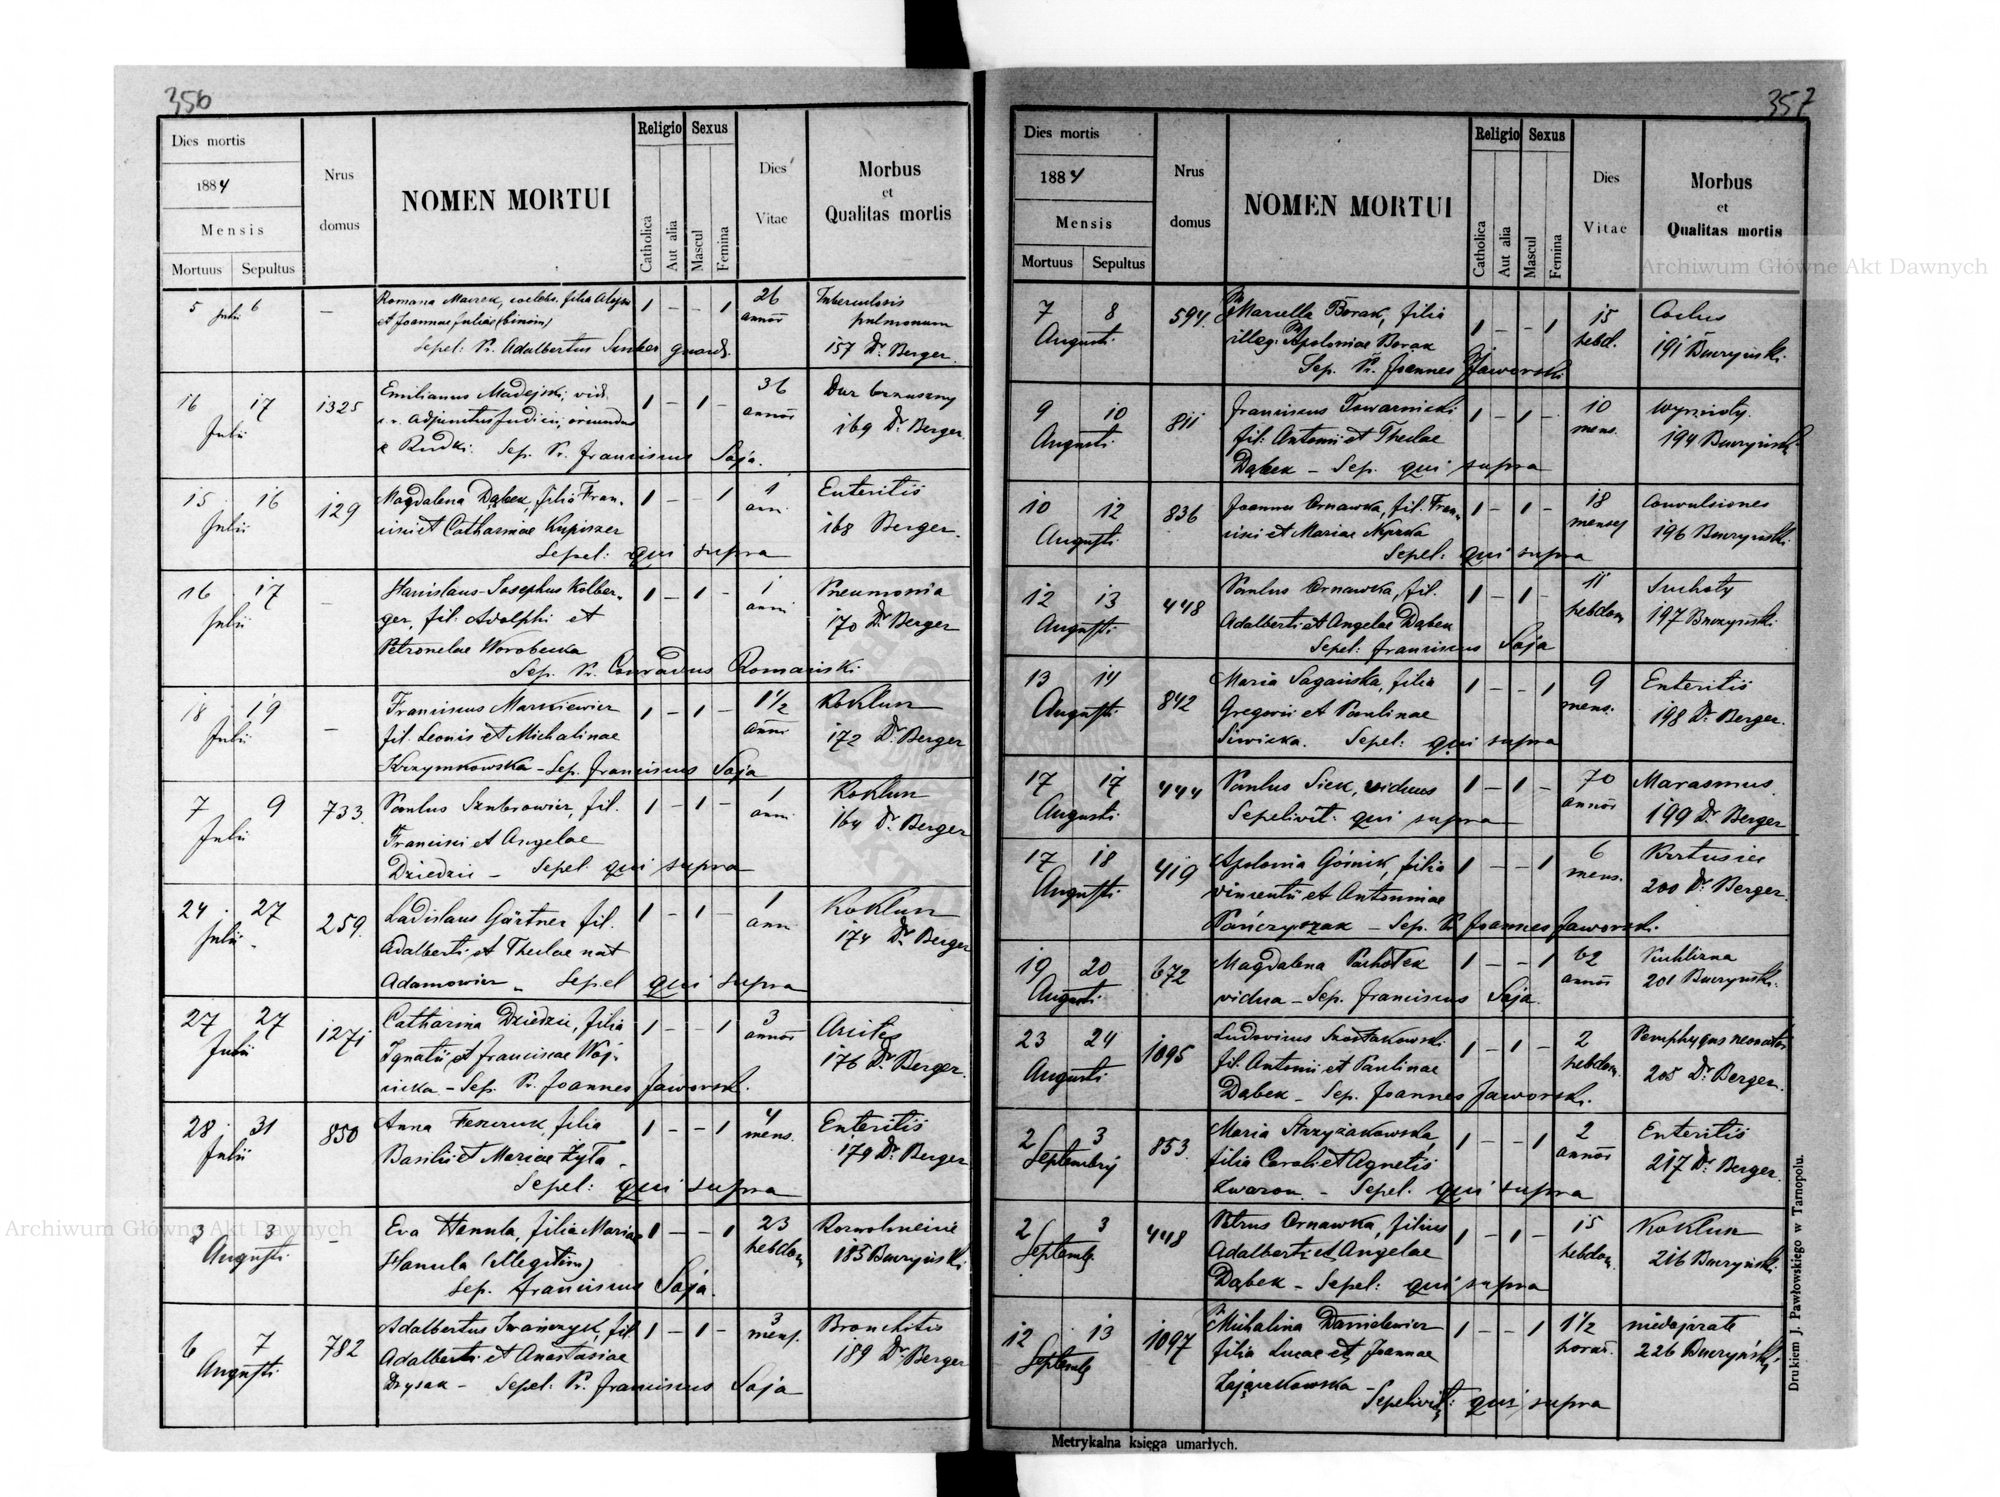 356
Dies mortis
1884
Mensis
Mortuus Sepultus
Nrus domus
NOMEN MORTUI
Religio
Catholica
Aut alia
Sexus
Mascul
Femina
Dies Vitae
Morbus
et
Qualitas mortis
5 Julii 6 –
Romana filia
et Joannae Juliae (binom)
Sepel: Pr. Adalbertus guard.
1 – – 1
26 annor
Tuberculosis
pulmonum
157 Dr. Berger
16 17 Julii 1325
Emilianus Madejski, vid.
adjunctus Judicii, oriundus
e Rudki. Sep. Pr. Franciscus Soja.
1 – 1 –
36 annor
Dur brzuszny
169 Dr. Berger
15 16 Julii 129
Magdalena Dąbek, filia Fran-
cisci et Catharinae Kupiszer
Sepel: qui supra
1 – – 1
1 ann.
Enteritis
168 Berger.
16 17 Julii –
Stanislaus-Josephus Kolber-
ger, fil. Adolphi et
Petronelae Worobecka
Sep. Pr. Conradus Romański
1 – 1 –
1 anni
Pneumonia
170 Dr. Berger
18 19 Julii –
Franciscus Markiewicz
fil. Leonis et Michalinae
Krzymkowska – Sep. Franciscus Soja
1 – 1 –
1 1/2 anni
Koklusz
172 Dr. Berger
7 9 Julii 733
Paulus Szubrowicz, fil.
Francisci et Angelae
Dziedzic – Sepel qui supra
1 – 1 –
1 ann.
Koklusz
164 Dr. Berger
24 27 Julii 259.
Ladislaus Gärtner fil.
Adalberti et Theclae nat
Adamowicz „ Sepel qui supra
1 – 1 –
1 ann.
Koklusz
174 Dr. Berger
27 27 Julii 1271
Catharina Dziedzic, filia
Ignatii et Franciscae Woj-
cicka – Sep. Pr. Joannes Jaworski.
1 – – 1
3 annor
176 Dr. Berger.
28 31 Julii 850
Anna filia
Basilii et Mariae Żyła.
Sepel: qui supra
1 – – 1
4 mens.
Enteritis
179 Dr. Berger
3 3 Augusti –
Eva Hanula, filia Mariae
Hanula (illegitim)
Sep. Franciscus Soja.
1 – – 1
23 hebdom
Rozwolnienie
183 Buczyński
6 7 Augusti 782
Adalbertus Iwańczyk, fil
Adalberti et Anastasiae
Dzysak – Sepel: Pr. Franciscus Soja
1 – 1 –
3 mens.
Bronchitis
189 Dr. Berger
357
Dies mortis
1884
Mensis
Mortuus Sepultus
Nrus domus
NOMEN MORTUI
Religio
Catholica
Aut alia
Sexus
Mascul
Femina
Dies Vitae
Morbus
et
Qualitas mortis
7 8 Augusti 594.
Marcella Borak, filia
illeg. Apoloniae Borak
Sep. Pr. Joannes Jaworski
1 – – 1
15 hebd.
191 Buczyński.
9 10 Augusti 811
Franciscus Towarnicki
fil: Antonii et Theclae
Dąbek – Sep. qui supra
1 – 1 –
10 mens.
Wyrzuty.
194 Buczyński
10 12 Augusti 836
Joannes Ornawka, fil. Fran-
cisci et Mariae
Sepel: qui supra
1 – 1 –
18 menses
Convulsiones
196 Buczyński
12 13 Augusti 448
Paulus Ornawka, fil.
Adalberti et Angelae Dąbek
Sepel: Franciscus Soja
1 – 1 –
11 hebdom
Suchoty
197 Buczyński
13 14 Augusti 842
Maria Sagańska, filia
Gregorii et Paulinae
Siwicka. Sepel: qui supra
1 – – 1
9 mens.
Enteritis
198 Dr. Berger.
17 17 Augusti 444
Paulus Siek, viduus
Sepelivit: qui supra
1 – 1 –
70 annor
Marasmus.
199 Dr. Berger
17 18 Augusti 419
Apolonia Górnik, filia
Vincentii et Antoninae
Pańczyszak – Sep. Pr. Joannes Jaworski.
1 – – 1
6 mens.
Krztusiec
200 Dr. Berger.
19 20 Augusti 672
Magdalena Pachołek
vidua – Sep. Franciscus Soja.
1 – – 1
62 annor
Puchlizna
201 Buczyński.
23 24 Augusti 1095
Ludovicus Szostakowski
fil. Antonii et Paulinae
Dąbek – Sep. Joannes Jaworski.
1 – 1 –
2 hebdom.
Pemphygus neonator
205 Dr. Berger.
2 3 Septembrij 853.
Maria Strzyżakowska,
filia Caroli et Agnetis
Zwarou. – Sepel. qui supra
1 – – 1
2 annor
Enteritis
217 Dr. Berger.
2 3 Septemb 448
Petrus Ornawka, filius
Adalberti et Angelae
Dąbek – Sepel: qui supra
1 – 1 –
15 hebdom.
Koklusz
216 Buczyński
12 13 Septemb 1097
Michalina Danielewicz
filia Lucae et Joannae
Zajączkowska –
Sepelivit: qui supra
1 – – 1
1 1/2 horar.
niedojrzałe
226 Buczyński
Metrykalna księga umarłych.
Drukiem J. Pawłowskiego w Tarnopolu.
Archiwum Główne Akt Dawnych
Archiwum Główne Akt Dawnych